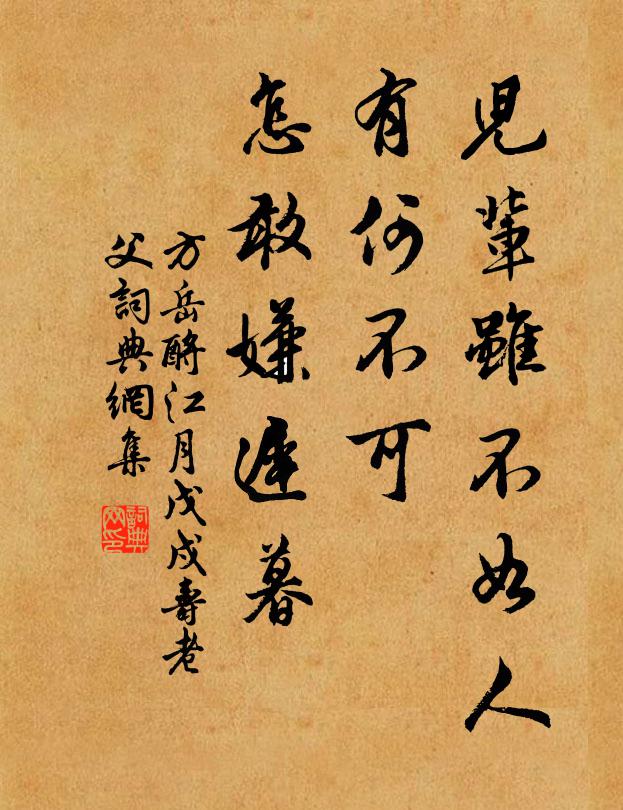 兒輩雖不如人
有何不可
怎敢嫌遲暮
方岳酹江月戊戌壽老
父詞典網集
詞典
网印